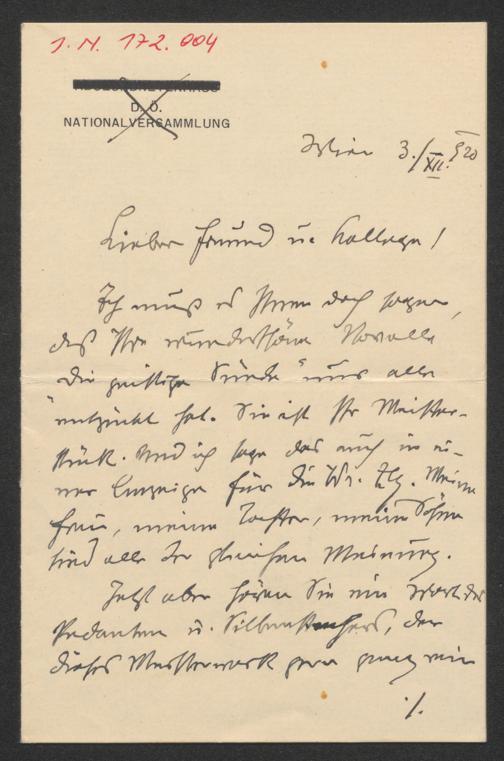 I. N. 172.004
D. Ö.
NATIONALVERSAMMLUNG
Wien 3./XII. 920
Lieber Freund u. Kollege!
Ich muß es Ihnen doch sagen,
daß Ihre wunderschöne Novelle
„Die geistige Sünde“ uns alle
entzückt hat. Sie ist Ihr Meister-
stück. Und ich sage das auch in ei-
ner Anzeige für die Wr. Ztg. Meine
Frau, meine Tochter, meine Söhne
sind alle der gleichen Meinung.
Jetzt aber hören Sie ein Wort des
Pedanten u. Silbenstechers, der
dieses Meisterwerk gern ganz rein
./.